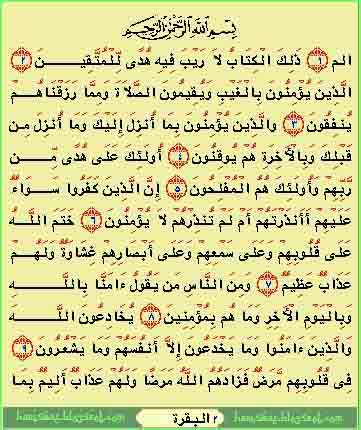 بِسْمِ اللَّهِ الرَّحْمَٰنِ الرَّحِيمِ
الم ١ ذَلِكَ الْكِتَابُ لَا رَيْبَ فِيهِ هُدًى لِّلْمُتَّقِينَ ٢
الَّذِينَ يُؤْمِنُونَ بِالْغَيْبِ وَيُقِيمُونَ الصَّلَاةَ وَمِمَّا رَزَقْنَاهُمْ
يُنفِقُونَ ٣ وَالَّذِينَ يُؤْمِنُونَ بِمَا أُنزِلَ إِلَيْكَ وَمَا أُنزِلَ مِن
قَبْلِكَ وَبِالْآخِرَةِ هُمْ يُوقِنُونَ ٤ أُولَئِكَ عَلَى هُدًى مِّن
رَّبِّهِمْ وَأُولَئِكَ هُمُ الْمُفْلِحُونَ ٥ إِنَّ الَّذِينَ كَفَرُوا سَوَاءٌ
عَلَيْهِمْ ءَأَنذَرْتَهُمْ أَمْ لَمْ تُنذِرْهُمْ لَا يُؤْمِنُونَ ٦ خَتَمَ اللَّهُ
عَلَى قُلُوبِهِمْ وَعَلَى سَمْعِهِمْ وَعَلَى أَبْصَارِهِمْ غِشَاوَةٌ وَلَهُمْ
عَذَابٌ عَظِيمٌ ٧ وَمِنَ النَّاسِ مَن يَقُولُ ءَامَنَّا بِاللَّهِ
وَبِالْيَوْمِ الْآخِرِ وَمَا هُم بِمُؤْمِنِينَ ٨ يُخَادِعُونَ اللَّهَ
وَالَّذِينَ ءَامَنُوا وَمَا يَخْدَعُونَ إِلَّا أَنفُسَهُمْ وَمَا يَشْعُرُونَ ٩
فِي قُلُوبِهِم مَّرَضٌ فَزَادَهُمُ اللَّهُ مَرَضًا وَلَهُمْ عَذَابٌ أَلِيمٌ بِمَا
٢ البقرة